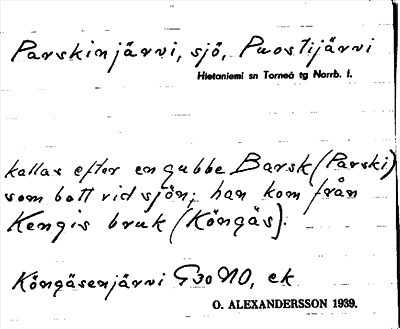 Parskinjärvi, sjö, Puostijärvi
Hietaniemi sn Torneå tg Norrb. l.
kallas efter en gubbe Barsk (Parski)
som bott vid sjön; han kom från
Kengis bruk (Köngäs).
Köngäsenjärvi G30 NO, ek
O. ALEXANDERSSON 1939.